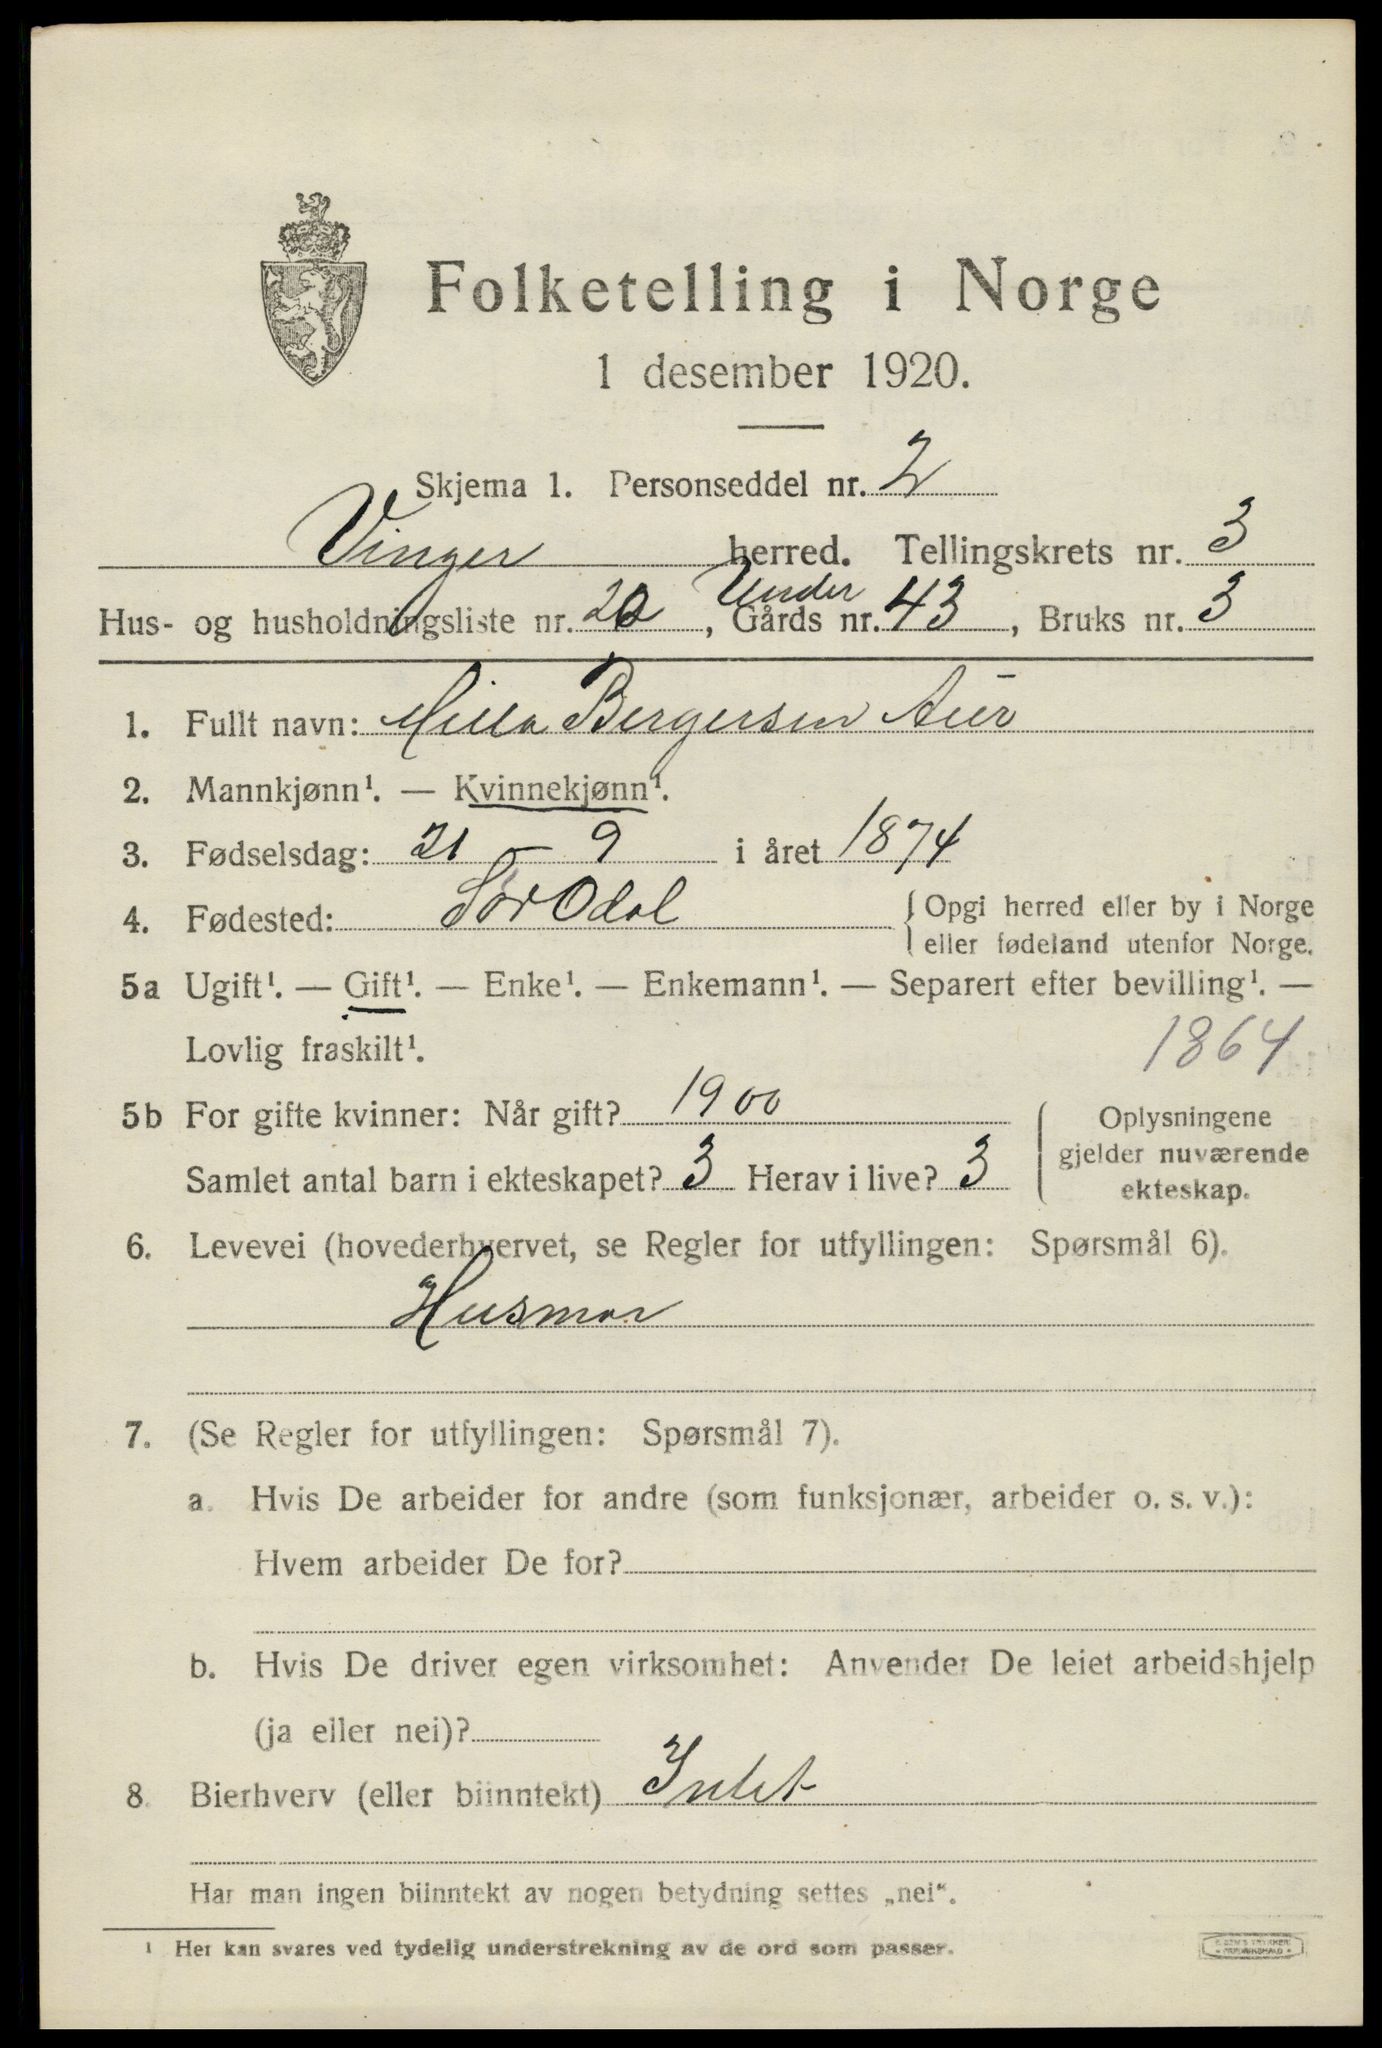 Folketelling i Norge
1 desember 1920.
Skjema 1. Personseddel nr. 2
Vinger herred. Tellingskrets nr. 3
Under
Hus- og husholdningsliste nr. 20, Gårds nr. 43, Bruks nr. 3
1. Fullt navn: Milla Bergersen Aur
2. Mannkjønn¹. — Kvinnekjønn¹.
3. Fødselsdag: 21 - 9 i året 1874
4. Fødested: Sør Odal { Opgi herred eller by i Norge
eller fødeland utenfor Norge.
5a Ugift¹. — Gift¹. — Enke¹. — Enkemann¹. — Separert efter bevilling¹. —
Lovlig fraskilt¹. 1864
5b For gifte kvinner: Når gift? 1900
Samlet antal barn i ekteskapet? 3 Herav i live? 3
{ Oplysningene
gjelder nuværende
ekteskap.
6. Levevei (hovederhvervet, se Regler for utfyllingen: Spørsmål 6).
Husmor
7. (Se Regler for utfyllingen: Spørsmål 7).
a. Hvis De arbeider for andre (som funksjonær, arbeider o. s. v.):
Hvem arbeider De for?
b. Hvis De driver egen virksomhet: Anvender De leiet arbeidshjelp
(ja eller nei)?
8. Bierhverv (eller biinntekt) Intet
Har man ingen biinntekt av nogen betydning settes „nei“.
¹ Her kan svares ved tydelig understrekning av de ord som passer.